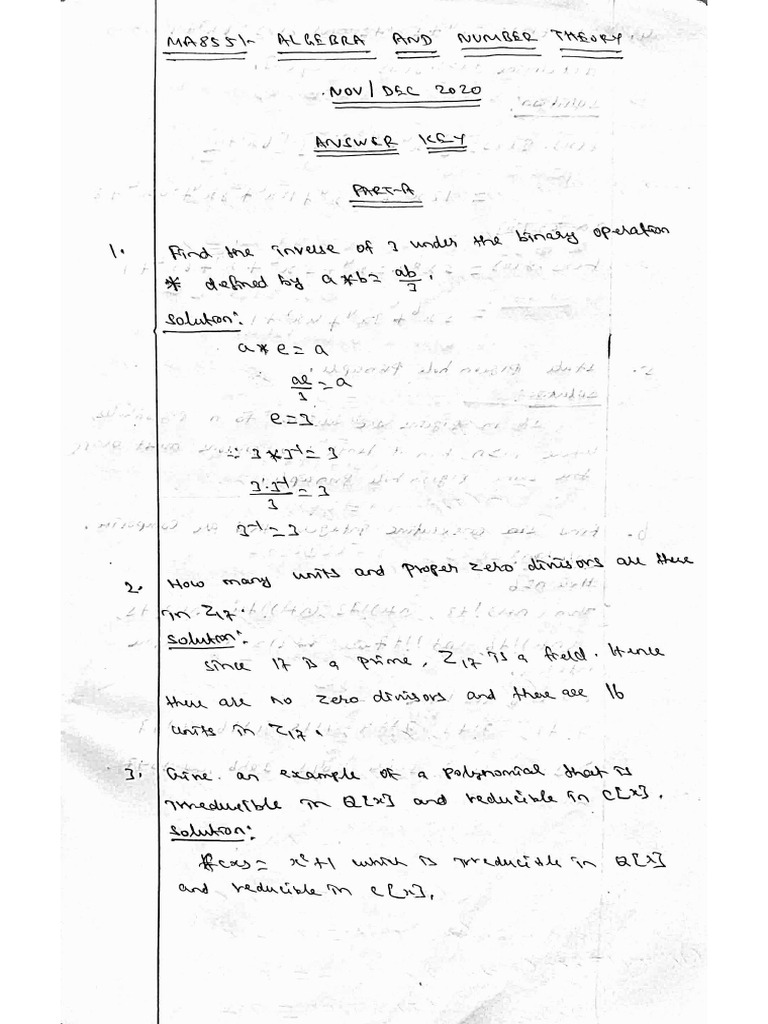 MA8551- ALGEBRA AND NUMBER THEORY
NOV/DEC 2020
ANSWER KEY
PART-A
1. Find the inverse of 3 under the binary operation
* defined by a*b= ab/3.
Solution:
a*e=a
ae/3=a
e=3
∴ 3*3⁻¹=3
3·3⁻¹/3=3
3⁻¹=3
2. How many units and proper zero divisors are there
in Z₁₇.
Solution:
Since 17 is a prime, Z₁₇ is a field. Hence
there are no zero divisors and there are 16
units in Z₁₇.
3. Give an example of a polynomial that is
irreducible in Q[x] and reducible in C[x].
Solution:
f(x)= x²+1 which is irreducible in Q[x]
and reducible in C[x].